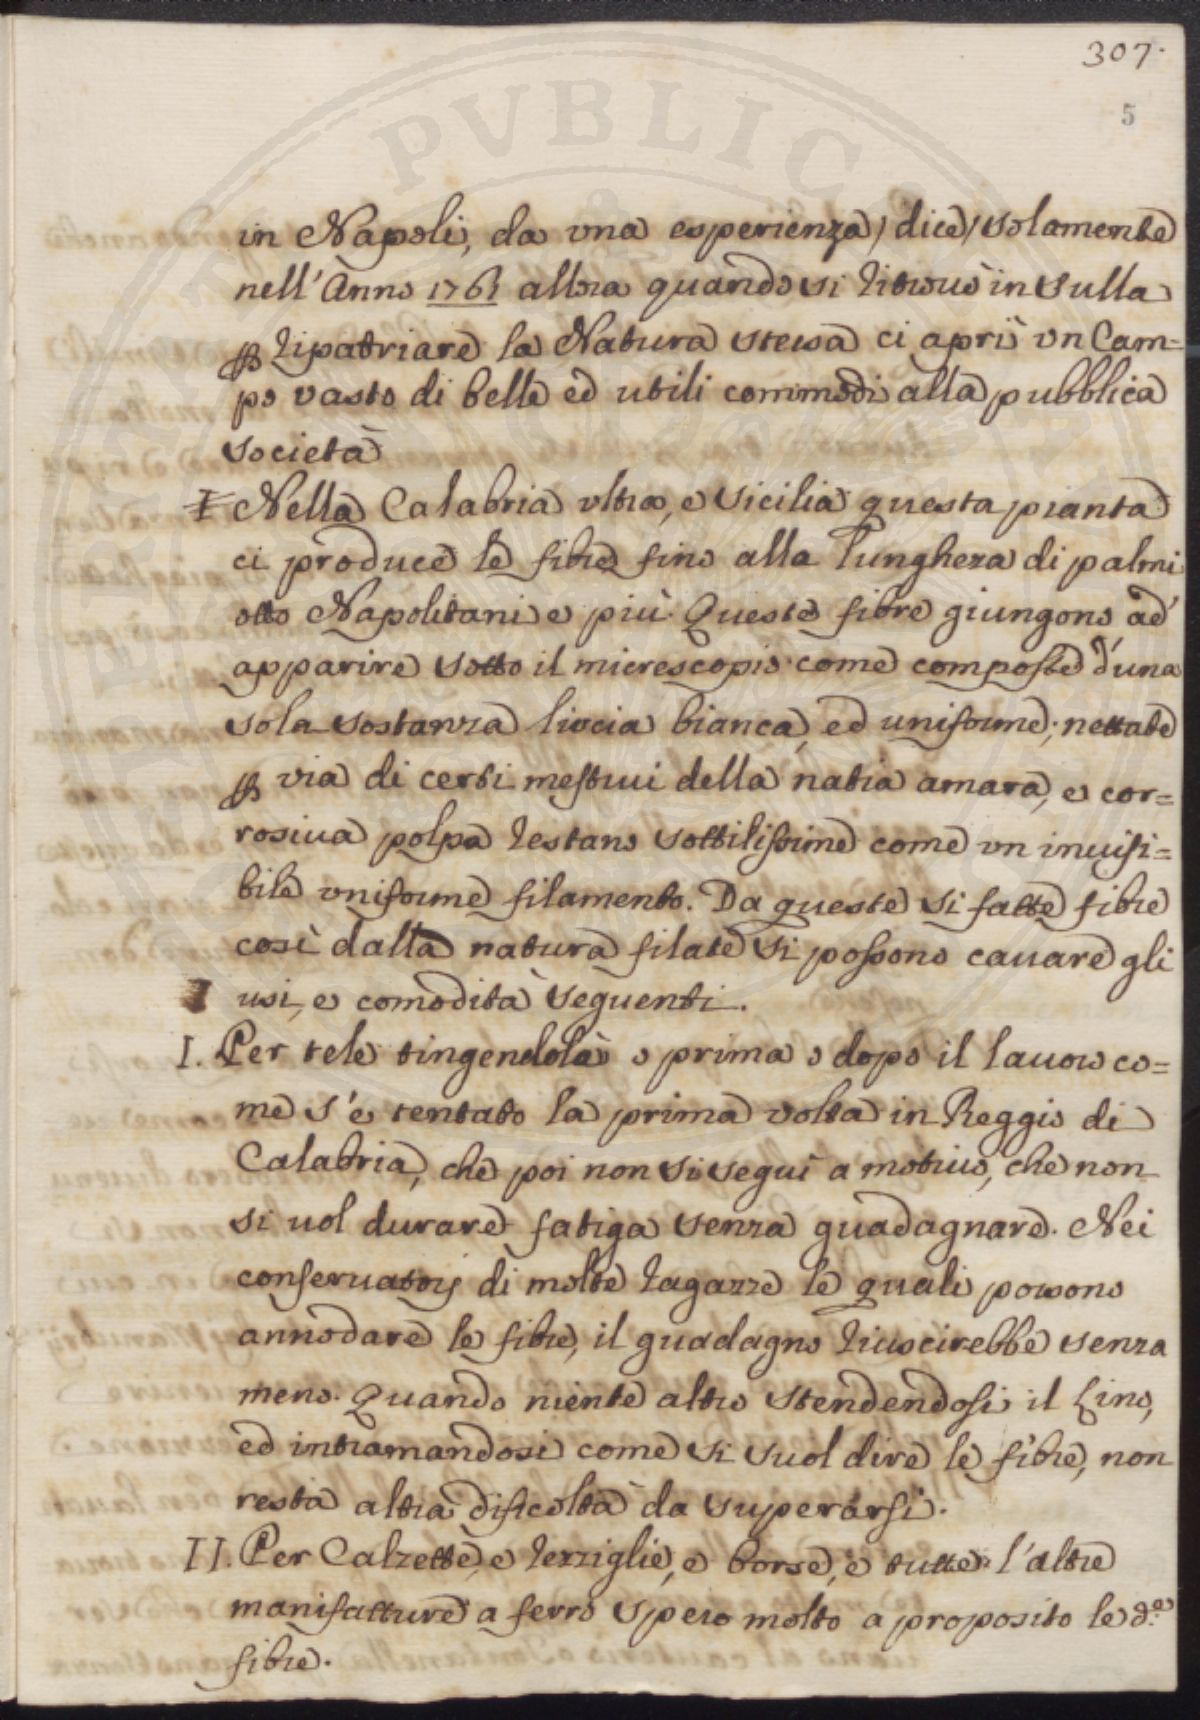 307.
5
in Napoli, da una esperienza / dice / solamente
nell'Anno 1761 allora quando si ritrovò in sulla
ꝑ ripatriare la Natura stessa ci aprì un Cam=
po vasto di belle ed utili commodi alla pubblica
società
Nella Calabria ultra, e Sicilia questa pianta
ci produce le fibre fino alla lungheza di palmi
otto Napolitani e più. Queste fibre giungono ad
apparire sotto il micrescopio come composte d'una
sola sostanza liscia bianca, ed uniforme; nettate
ꝑ via di certi mestrui della natia amara, e cor=
rosiva polpa restano sottilissime come un invisi=
bile uniforme filamento. Da queste si fatte fibre
così dalla natura filate si possono cavare gli
usi, e comodità seguenti.
I. Per tele tingendola o prima o dopo il lavoro co=
me s'è tentato la prima volta in Reggio di
Calabria, che poi non si seguì a motivo, che non
si vol durare fatiga senza guadagnare. Nei
conservatorij di molte ragazze le quali possono
annodare le fibre, il guadagno riuscirebbe senza
meno. Quando niente altro stendendosi il Lino,
ed intramandosi come si suol dire le fibre, non
resta altra dificoltà da superarsi.
II. Per Calzette, e rezziglie, e borse, e tutte l'altre
manifatture a ferro spero molto a proposito le d.e
fibre.